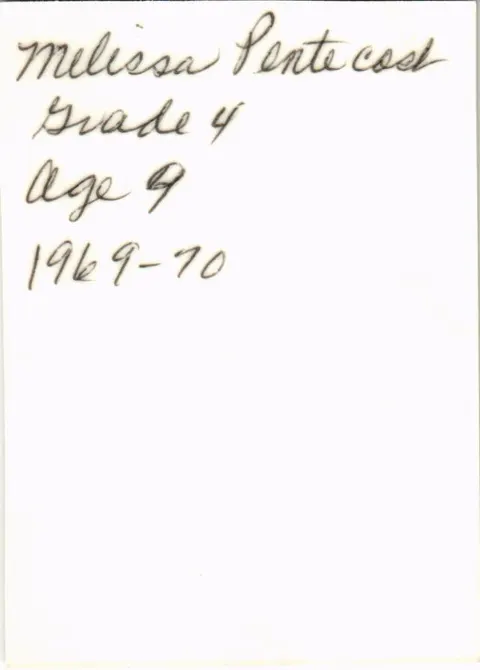 Melissa Pentecost
Grade 4
Age 9
1969-70